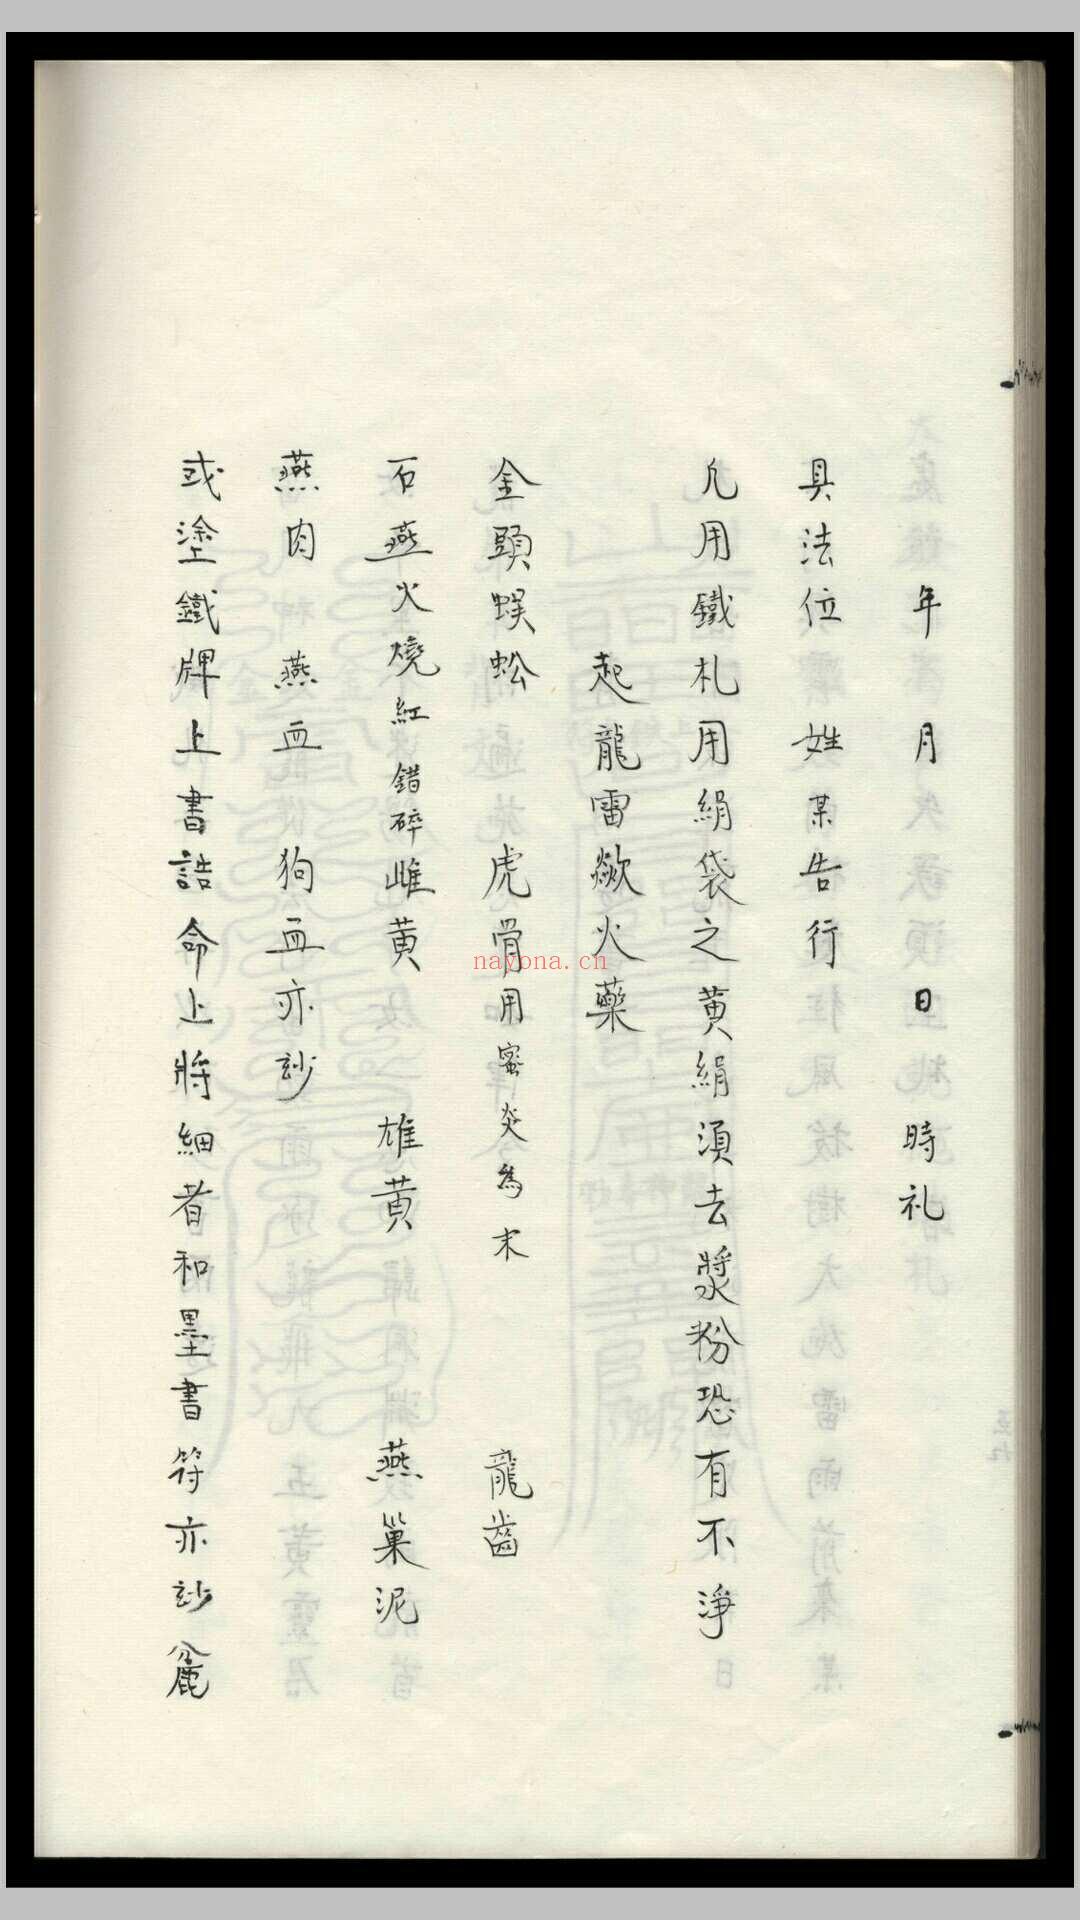 年　月　日　時　礼
具法位　姓某告行
凡用鐵札用絹袋之黄絹須去漿粉恐有不淨
起龍雷歘火藥
金頭蜈蚣　虎骨用蜜炙為末　龍齒
石燕火燒紅錯碎雌黄　雄黄　燕巢泥
燕肉　燕血　狗血亦玅
或塗鐵牌上書誥命上將細者和墨書符亦玅麄
nayona.cn